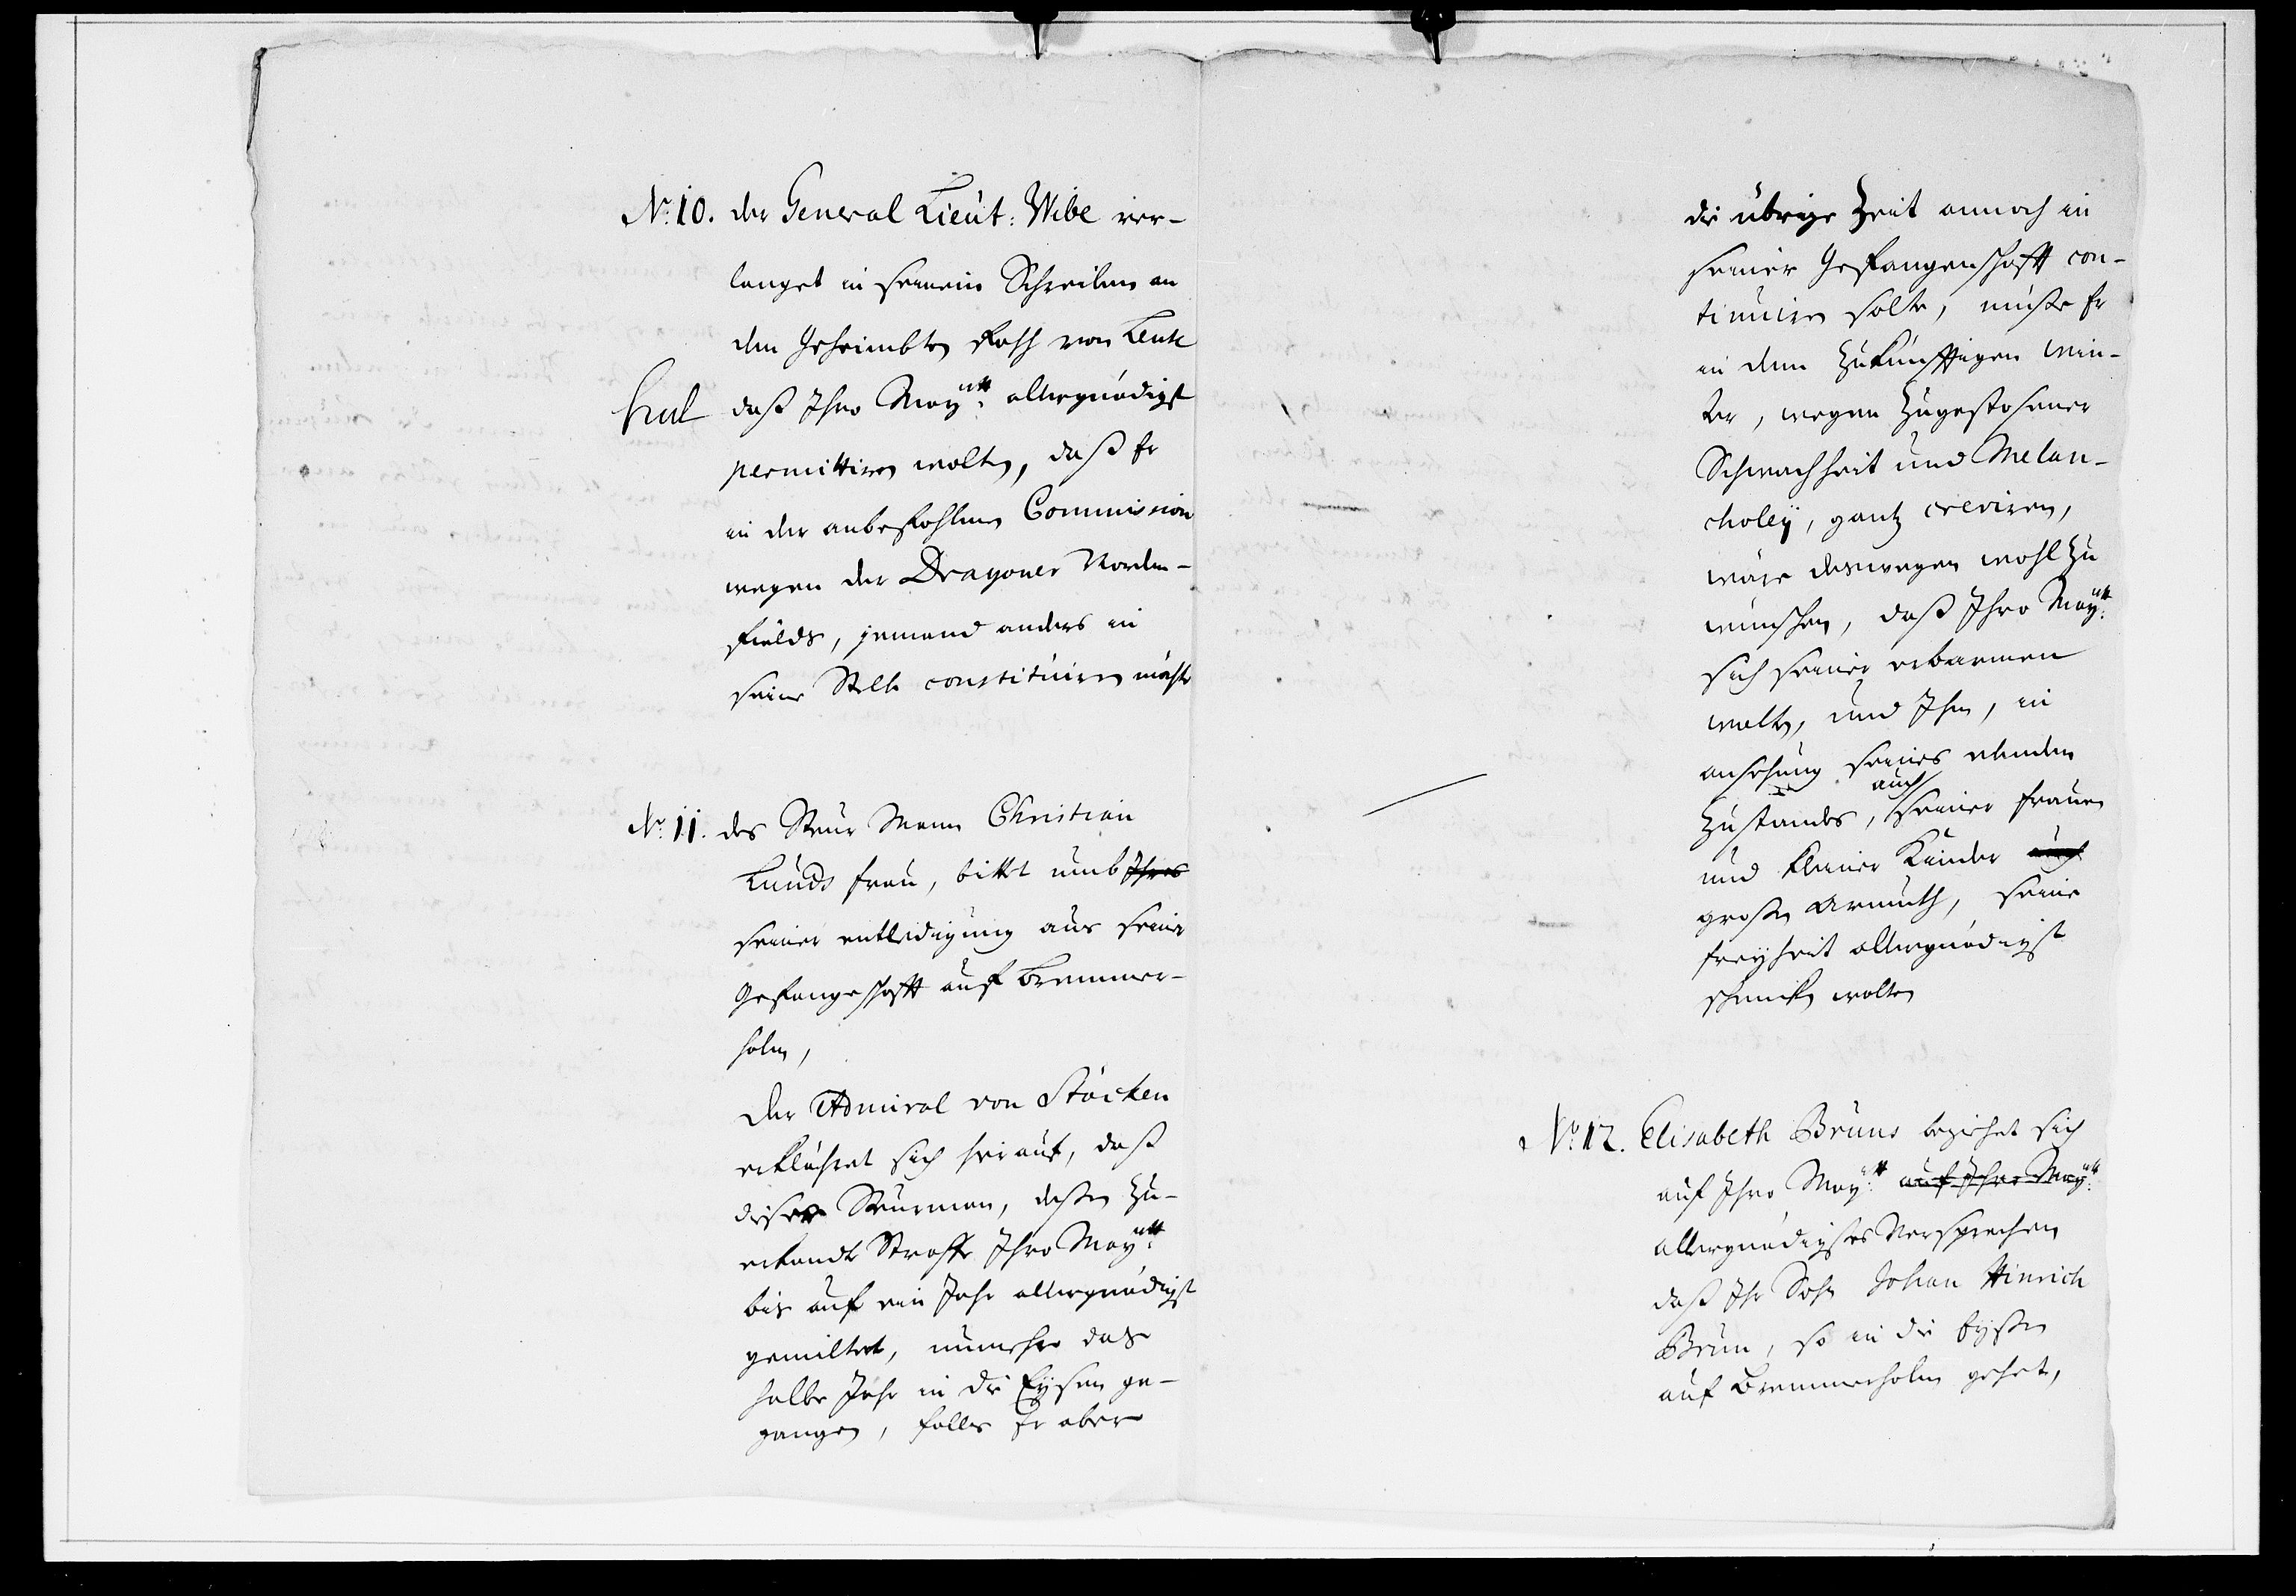 No: 10. der General Lieut: Wibe ver-
langet in seinem Schreiben an
den Geheimbten Rath von Lente
daß Ihro Mayttt: allergnädigst
permittiren wolten, daß Er
in der anbefohlenen Commission
wegen der Dragoner Norden-
fields, jemand anders in
seine Stelle constituiren möchte
No: 11. des Steur Mann Christian
Lunds frau, bittet umb Ihres
seiner entledigung aus seiner
Gefangeschafft auf Bremmer-
holm,
Der Admiral von Stöcken
erklähret sich hierauf, daß
dieser Steurman, deßen zu-
erkandte Straffe Ihro Maytt:
bis auf ein Jahr allergnädigst
gemiltert, nunmehro das
halbe Jahr in die Eysen ge-
gangen, falls Er aber
die übrige Zeit annoch in
seiner Gefangenschafft con-
tinuiren solte, müste Er
in dem zukünfftigen Win-
ter, wegen zugestoßener
Schwachheit und Melan-
choley, gantz creviren,
wäre deswegen wohl zu
wünschen, daß Ihro Maytt:
sich seiner erbarmen
wolten, und Ihm, in
ansehung seines elenden
auch
Zustandes, seiner frauen
und kleiner Kinder auch
großen Armuth, seine
freyheit allergnädigst
schencken wolten
No: 12. Elisabeth Bruns beziehet sich
auf Ihro Maytt: auf Ihro Maytt:
allergnädigstes Versprechen
daß Ihr Sohn Johan Hinrich
Brun, so in die Eyßen
auf Bremmerholm gehet,